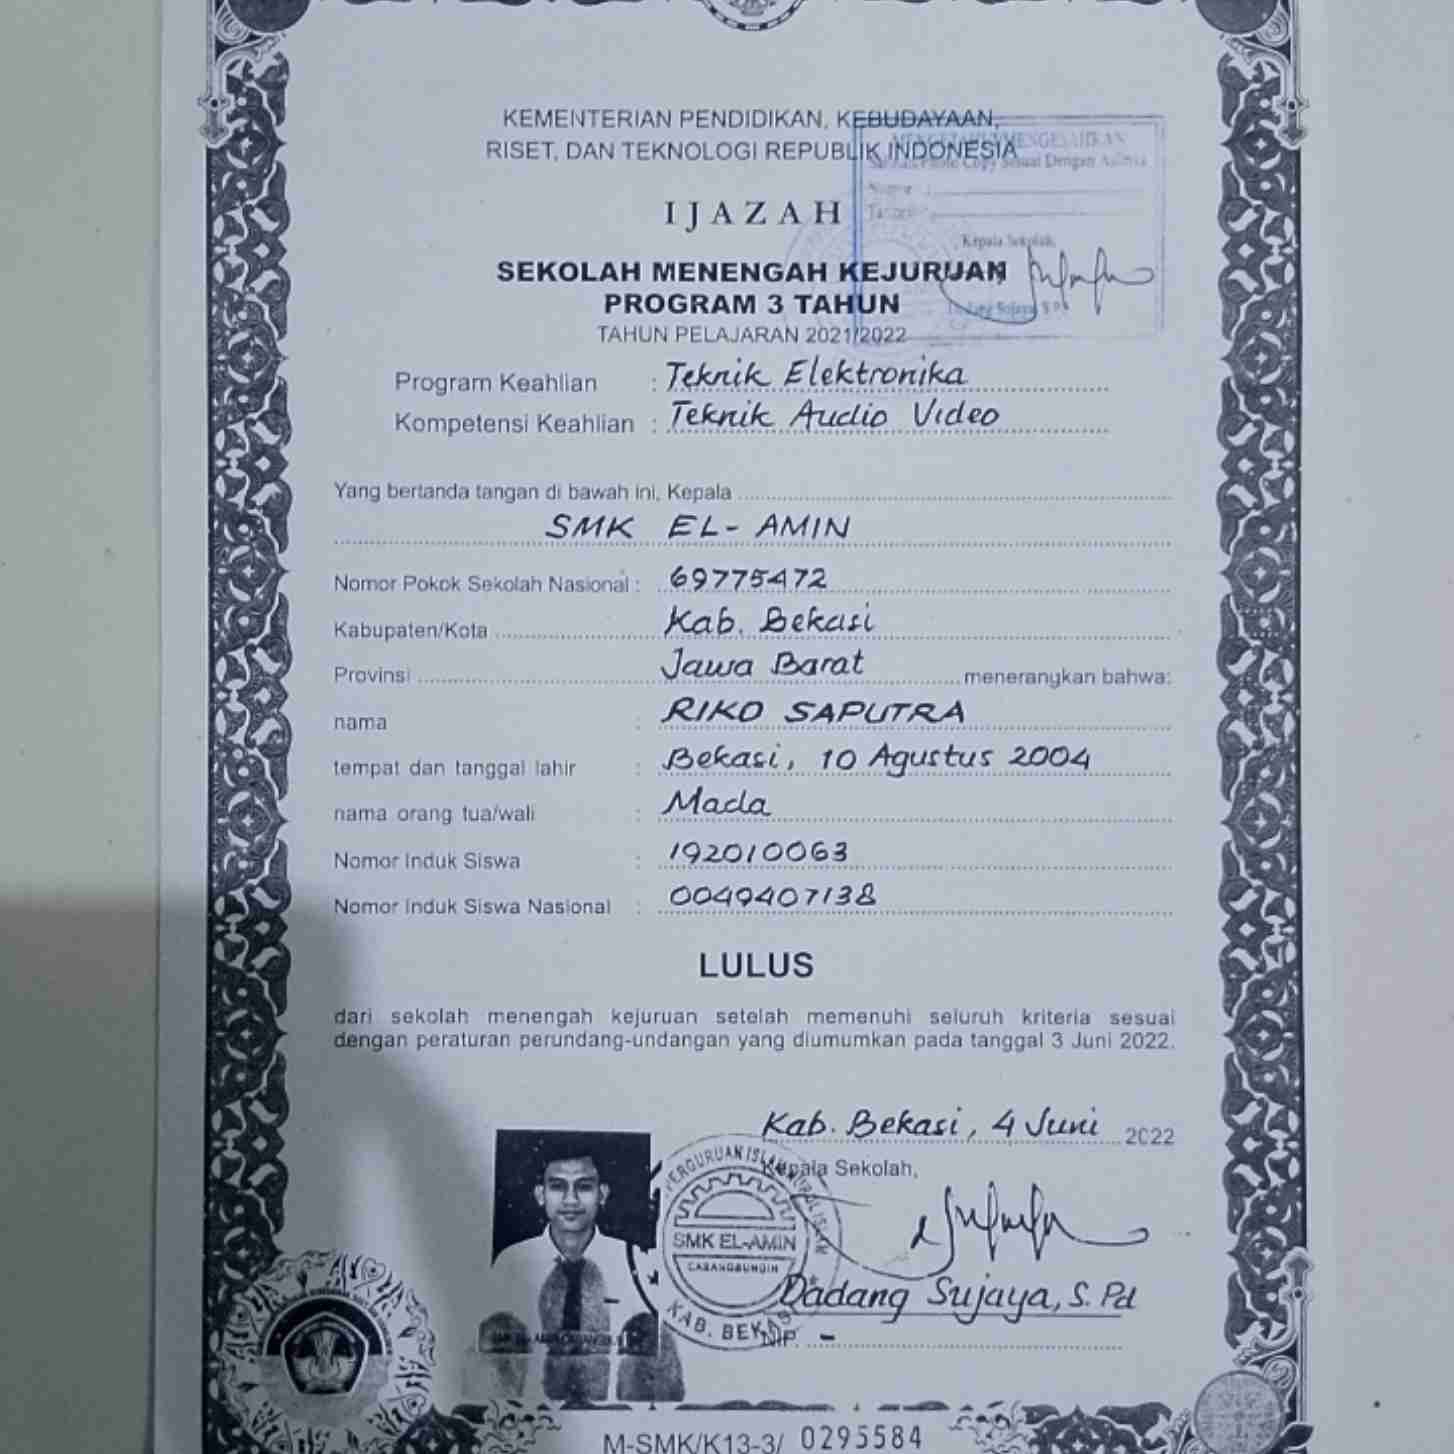 KEMENTERIAN PENDIDIKAN, KEBUDAYAAN,
RISET, DAN TEKNOLOGI REPUBLIK INDONESIA
Copy Sesuai Dengan Aslinya
Kepala Sekolah,
IJAZAH
SEKOLAH MENENGAH KEJURUAN
PROGRAM 3 TAHUN
TAHUN PELAJARAN 2021/2022
Program Keahlian : Teknik Elektronika
Kompetensi Keahlian : Teknik Audio Video
Yang bertanda tangan di bawah ini, Kepala
SMK EL-AMIN
Nomor Pokok Sekolah Nasional : 69775472
Kabupaten/Kota Kab. Bekasi
Provinsi Jawa Barat menerangkan bahwa:
nama : RIKO SAPUTRA
tempat dan tanggal lahir : Bekasi, 10 Agustus 2004
nama orang tua/wali : Mada
Nomor Induk Siswa : 192010063
Nomor Induk Siswa Nasional : 0049407138
LULUS
dari sekolah menengah kejuruan setelah memenuhi seluruh kriteria sesuai
dengan peraturan perundang-undangan yang diumumkan pada tanggal 3 Juni 2022.
Kab. Bekasi, 4 Juni 2022
Kepala Sekolah,
SMK EL-AMIN
CABANGBUNGIN
KAB. BEKASI
Dadang Sujaya, S.Pd
NIP. -
M-SMK/K13-3/ 0295584